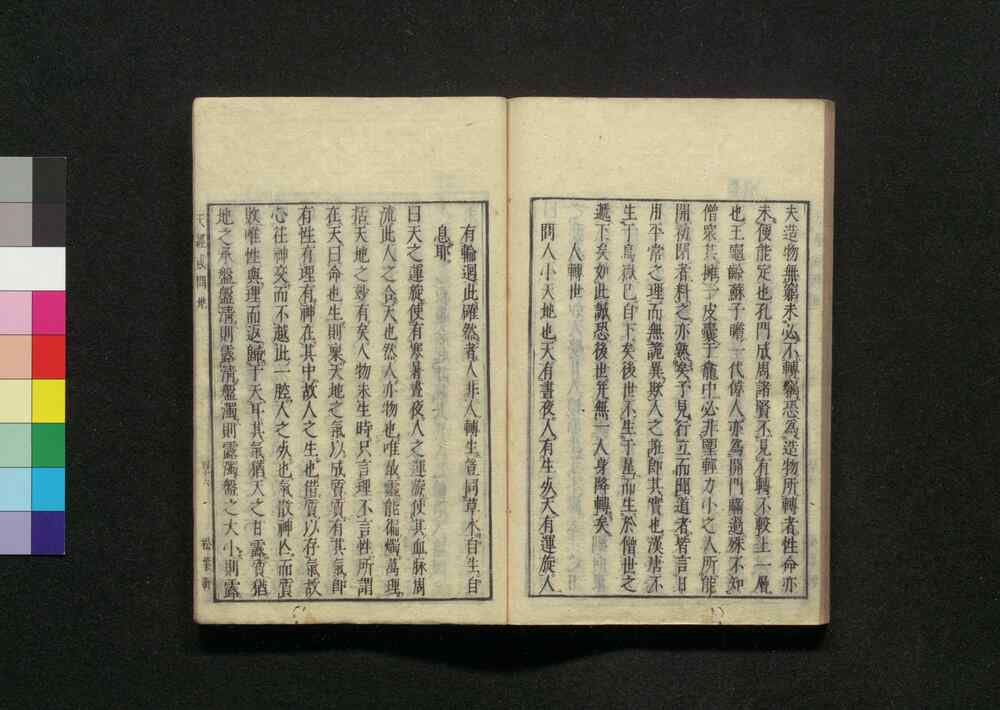 夫造物無窮未必不轉竊恐為造物所轉者性命亦
未便能定也孔門成周諸賢不見有轉不較上一層
也王龜齡蘇子瞻二代偉人亦為開門繭過殊不知
僧眾其擁于皮囊于龕中必非聖輕力小之人所能
開竅聞者料之亦熟矣予見行立而聞道者皆言日
用平常之理而無詭異欺人之誑即其實也漢唐不
生于烏嶽巳自下矣後世不生于是而生於僧世之
遞下矣如此誠恐後世并無一人身降轉矣
人轉世
問人小天地也天有晝夜人有生死天有運旋人
有輪迴此確然者人非人轉生豈同草木自生自
息耶
曰天之運旋使有寒暑晝夜人之運旋使其血脉周
流此人之合天也然人亦物也唯故靈能徧燭萬理
括天地之妙有矣人物未生時只言理不言性所謂
在天曰命也生則稟天地之氣以成質質有其氣即
有性有理有神在其中故人之生也借質以存氣故
心在神交而不越此一腔人之死也氣散神亾而質
敗唯性與理而返歸于天耳其氣猶天之甘露質猶
地之承盤盤清則露清盤濁則露濁盤之大小則露
天經或問 地
松葉軒